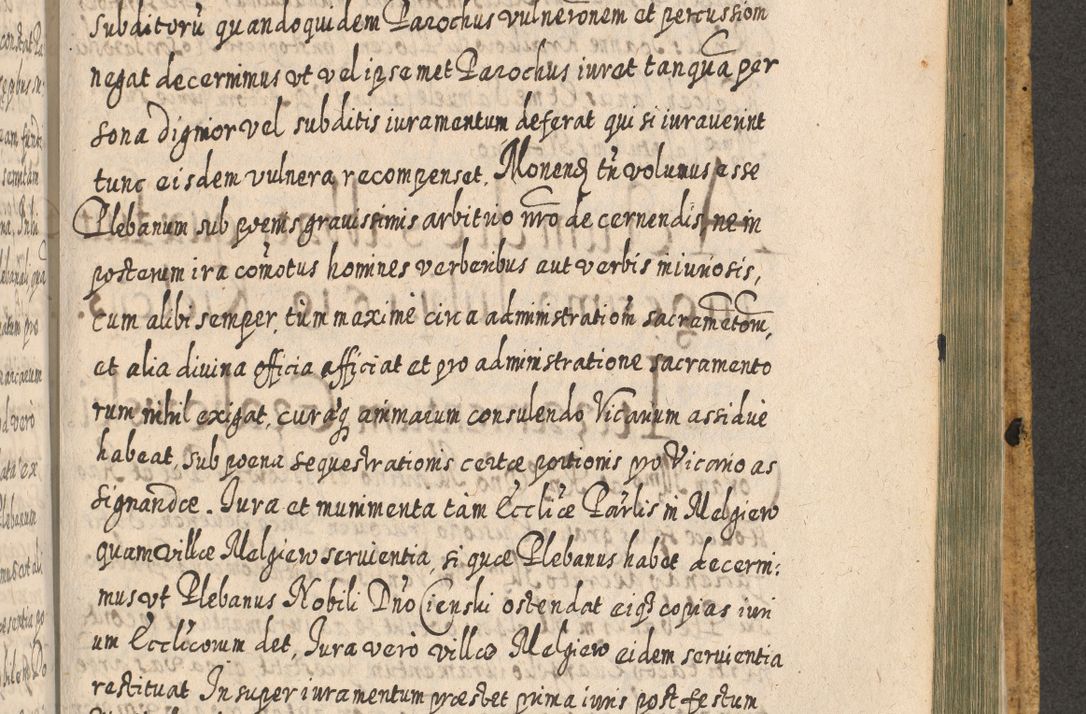 subditorũ quandoquidem Parochus vulnerõnem et percussiõm
negat decernimus vt vel ipsemet Parochus iuret tanquã per
sona dignior vel subditis iuramentum deferat qui si iurauerint
tunc eisdem vulnera recompenset. Monendũ tñ volumus esse
Plebanum sub poenis grauissimis arbitrio nrõ decernendis, ne in
posterum ira com̃otus homines verberibus aut verbis iniuriosis,
cum alibi semper, tùm maximè circa administratiom̃ sacrametom̃,
et alia diuina officia afficiat et pro administratione sacramento
rum nihil exigat, curaq; animarum consulendo Vicarium assiduè
habeat, sub poena sequestrationis certæ portionis pro Vicario as
signandæ. Iura et munimenta tàm Ecclĩæ Parl̃is in Melgiew
quam villæ Melgiew seruientia, si quæ Plebanus habet decerni:
mus vt Plebanus Nobili Dñо Cienski ostendat eiq; copias iuri
um Ecclĩcorum det, Iura verò villæ Melgiew eidem seruientia
restituat Insuper iuramentum præstet prima iuris post festum